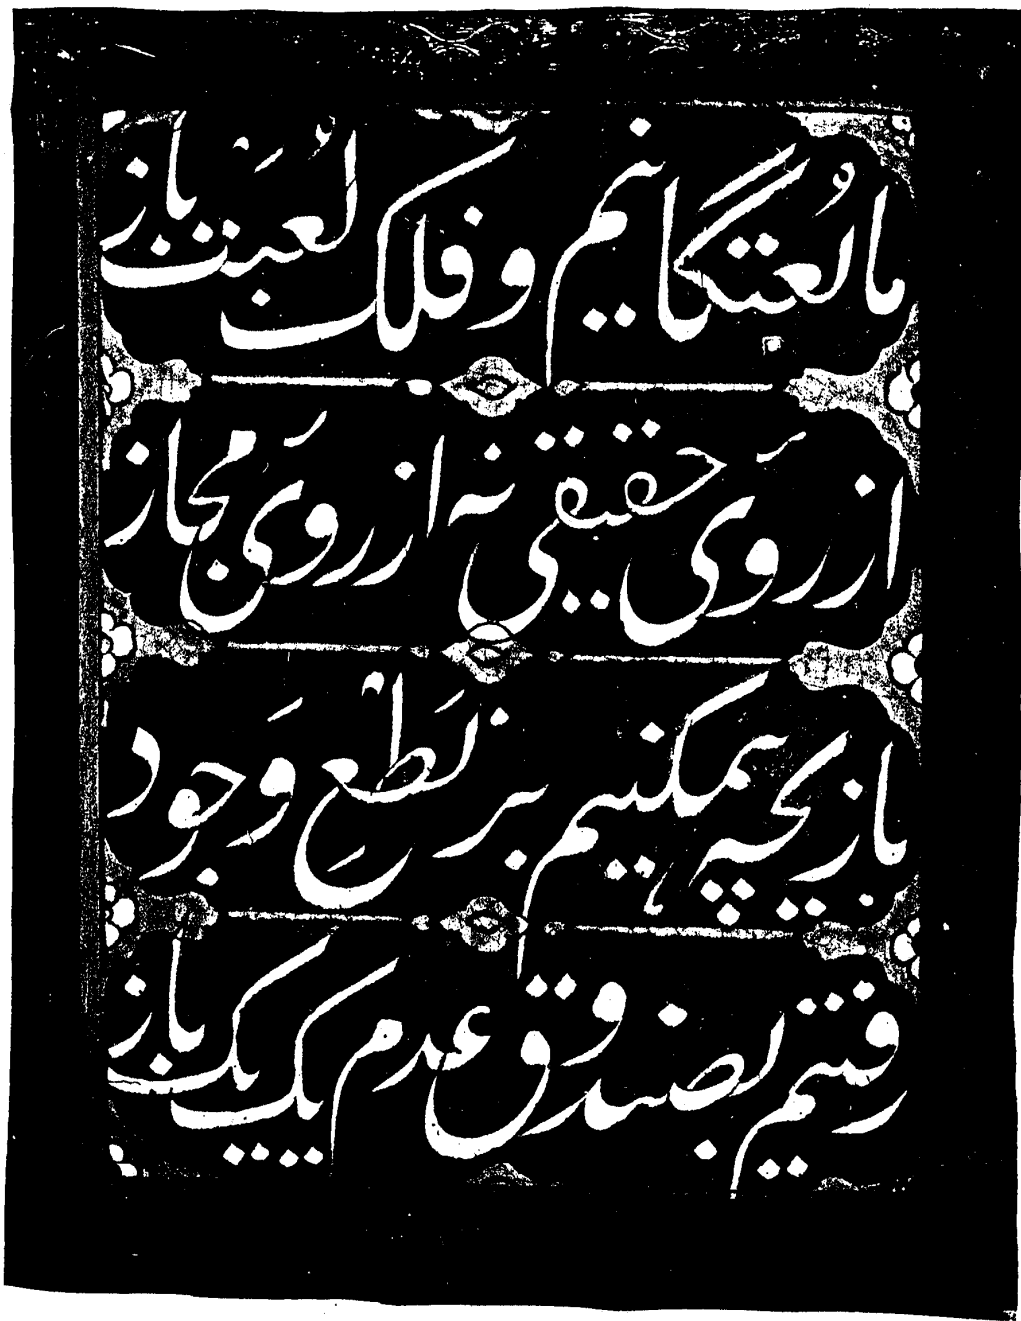 ما لُعبتگانیم و فلک لُعبَت باز
از رَوی حقیقی نه از رَوی مجاز
بازیچه همیکنیم بر نَطْعِ وَجود
رفتیم بصندوق عدم یک یک باز